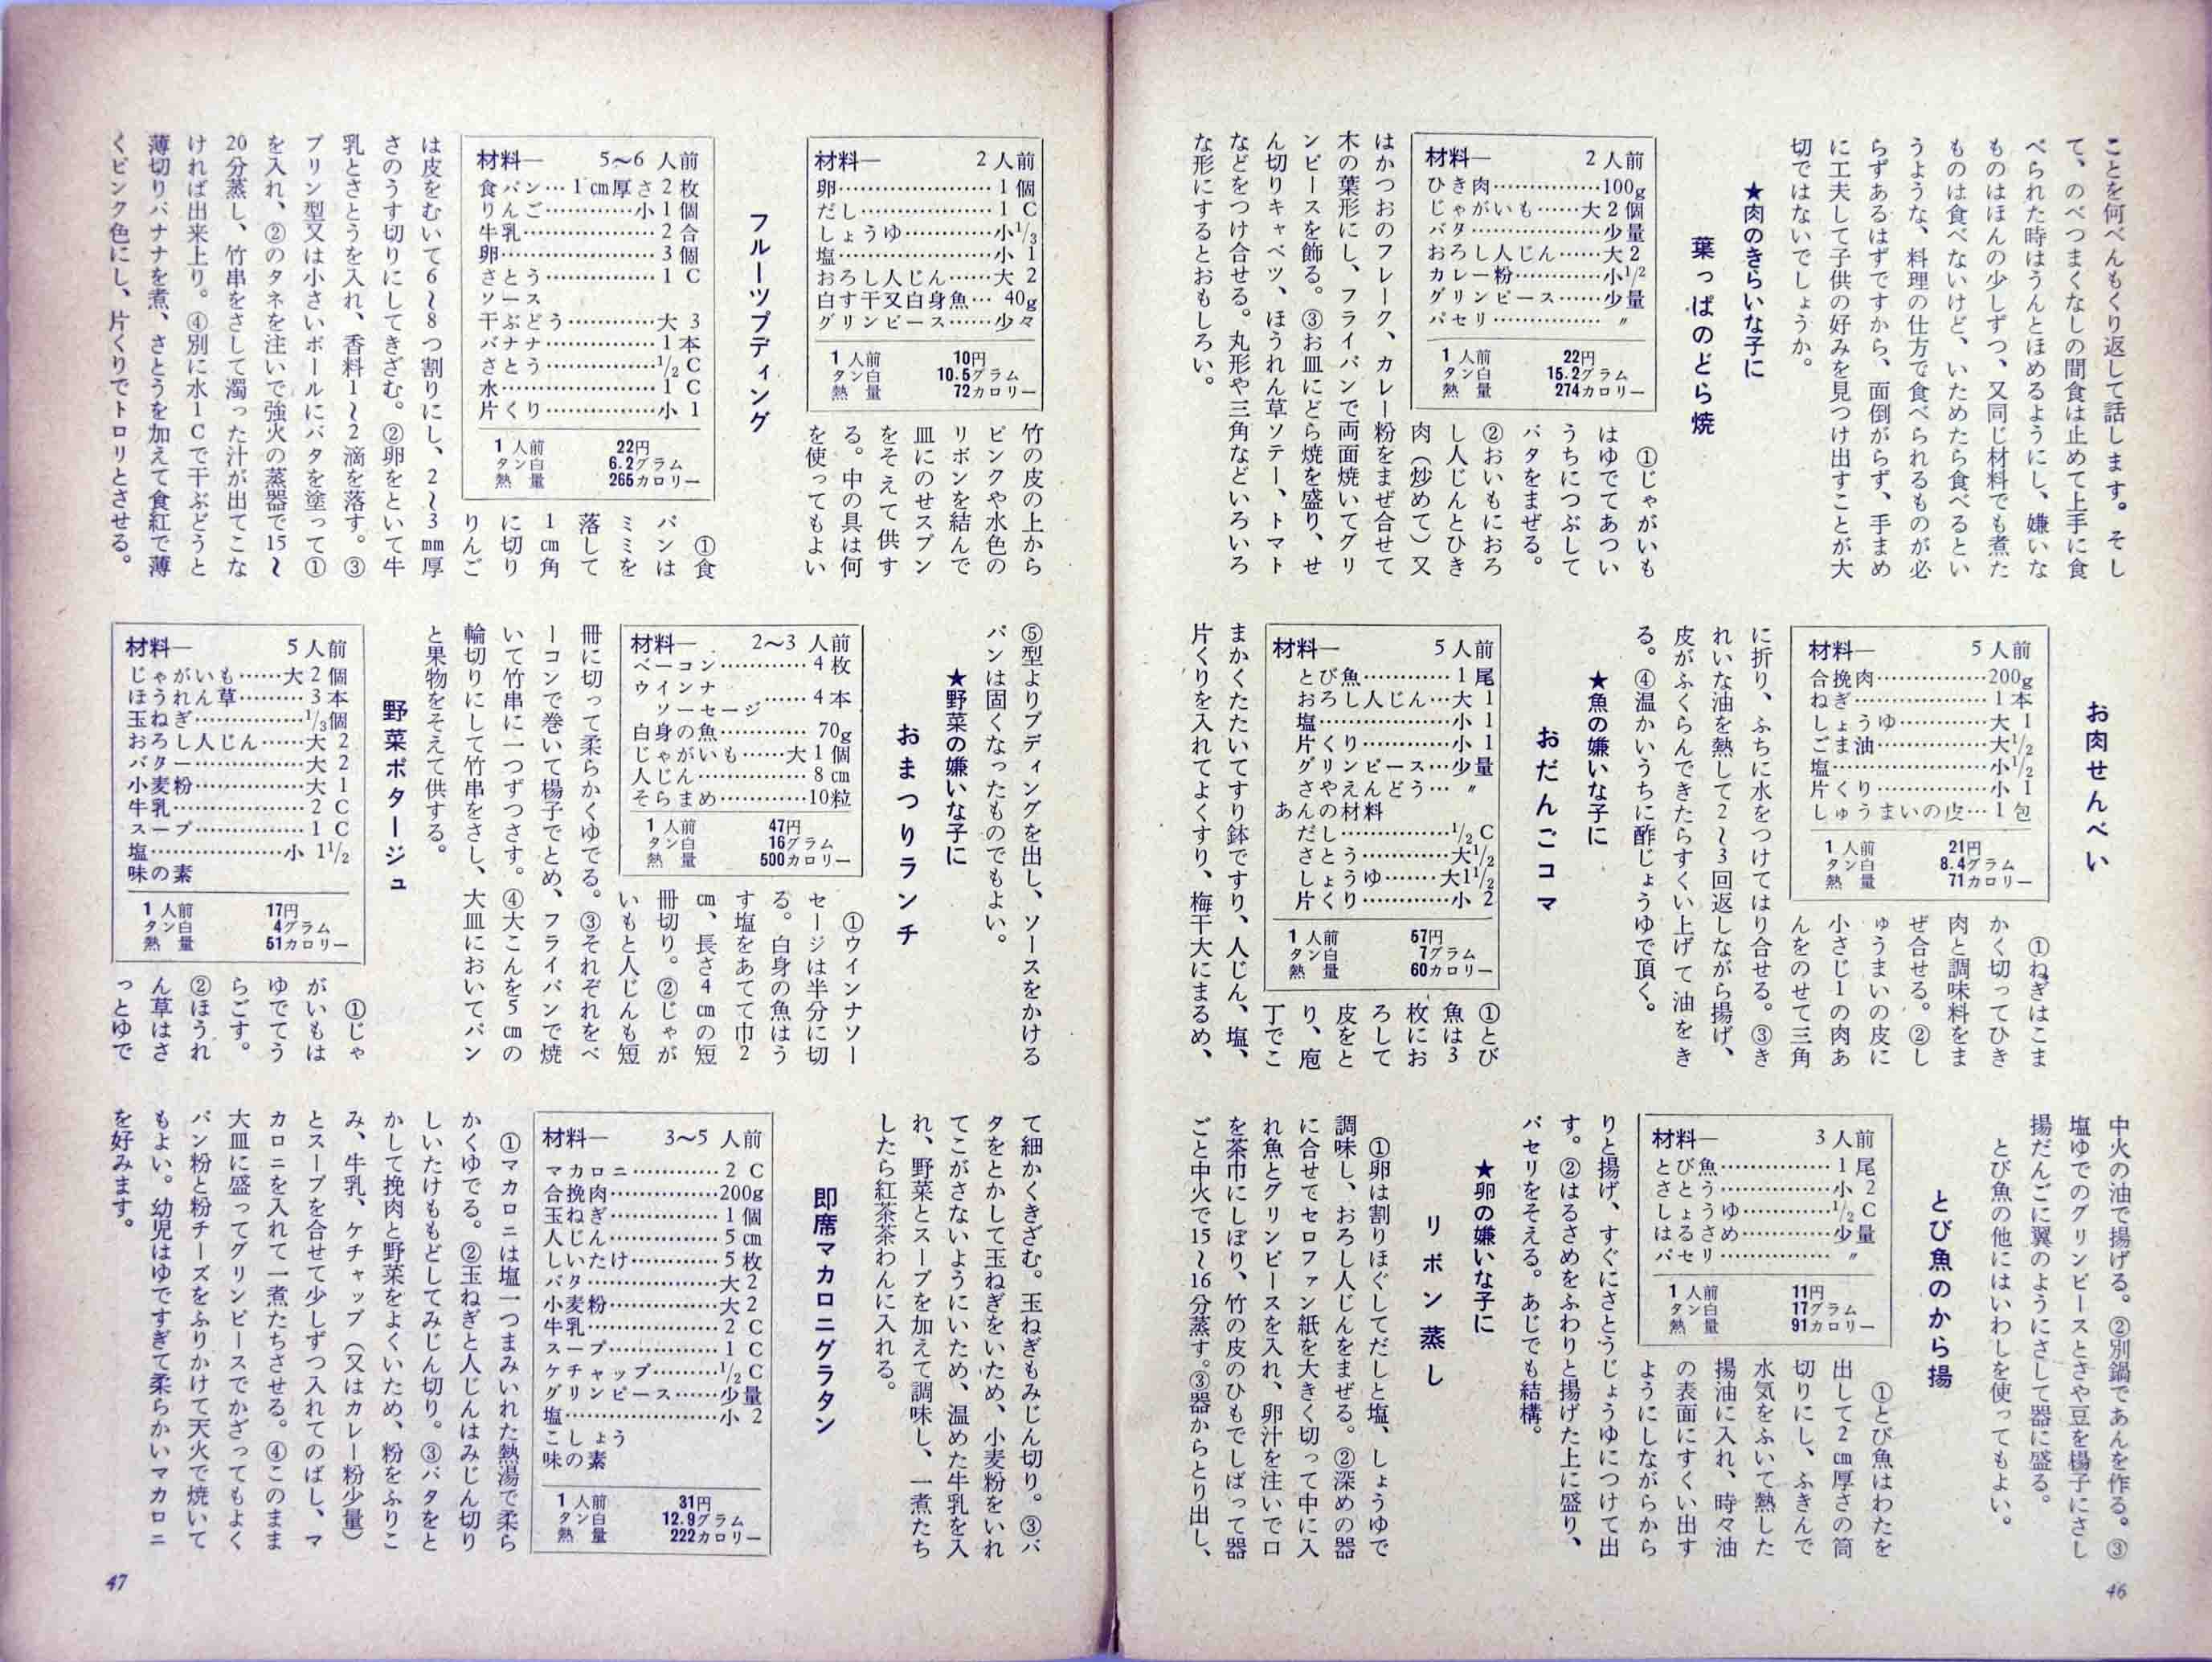 ことを何べんもくり返して話します。そし
て、のべつまくなしの間食は止めて上手に食
べられた時はうんとほめるようにし、嫌いな
ものはほんの少しずつ、又同じ材料でも煮た
ものは食べないけど、いためたら食べるとい
うような、料理の仕方で食べられるものが必
らずあるはずですから、面倒がらず、手まめ
に工夫して子供の好みを見つけ出すことが大
切ではないでしょうか。
★肉のきらいな子に
葉っぱのどら焼
材料― 2人前
ひき肉……………100g
じゃがいも……大2個
バタ………………少量
おろし人じん……大2
カレー粉…………小1/2
グリンピース……少量
パセリ……………〃
1人前 22円
タン白 15.2グラム
熱量 274カロリー
①じゃがいも
はゆでてあつい
うちにつぶして
バタをまぜる。
②おいもにおろ
し人じんとひき
肉（炒めて）又
はかつおのフレーク、カレー粉をまぜ合せて
木の葉形にし、フライパンで両面焼いてグリ
ンピースを飾る。③お皿にどら焼を盛り、せ
ん切りキャベツ、ほうれん草ソテー、トマト
などをつけ合せる。丸形や三角などいろいろ
な形にするとおもしろい。
お肉せんべい
材料― 5人前
合挽肉……………200g
ねぎ………………1本
しょうゆ…………大1
ごま油……………大1/2
塩…………………小1/2
片くり……………小1
しゅうまいの皮…1包
1人前 21円
タン白 8.4グラム
熱量 71カロリー
①ねぎはこま
かく切ってひき
肉と調味料をま
ぜ合せる。②し
ゅうまいの皮に
小さじ1の肉あ
んをのせて三角
に折り、ふちに水をつけてはり合せる。③き
れいな油を熱して2〜3回返しながら揚げ、
皮がふくらんできたらすくい上げて油をき
る。④温かいうちに酢じょうゆで頂く。
★魚の嫌いな子に
おだんごコマ
材料― 5人前
とび魚…………1尾
おろし人じん…大1
塩………………小1
片くり…………小1
グリンピース…少量
さやえんどう…〃
あんの材料
だし……………1/2C
さとう…………大1/2
しょうゆ………大1 1/2
片くり…………小2
1人前 57円
タン白 7グラム
熱量 60カロリー
①とび
魚は3
枚にお
ろして
皮をと
り、庖
丁でこ
まかくたたいてすり鉢ですり、人じん、塩、
片くりを入れてよくすり、梅干大にまるめ、
中火の油で揚げる。②別鍋であんを作る。③
塩ゆでのグリンピースとさや豆を楊子にさし
揚だんごに翼のようにさして器に盛る。
とび魚の他にはいわしを使ってもよい。
とび魚のから揚
材料― 3人前
とび魚……………1尾
さとう……………小2
しょうゆ…………1/2C
はるさめ…………少量
パセリ……………〃
1人前 11円
タン白 17グラム
熱量 91カロリー
①とび魚はわたを
出して2cm厚さの筒
切りにし、ふきんで
水気をふいて熱した
揚油に入れ、時々油
の表面にすくい出す
ようにしながらから
りと揚げ、すぐにさとうじょうゆにつけて出
す。②はるさめをふわりと揚げた上に盛り、
パセリをそえる。あじでも結構。
★卵の嫌いな子に
リボン蒸し
①卵は割りほぐしてだしと塩、しょうゆで
調味し、おろし人じんをまぜる。②深めの器
に合せてセロファン紙を大きく切って中に入
れ魚とグリンピースを入れ、卵汁を注いで口
を茶巾にしぼり、竹の皮のひもでしばって器
ごと中火で15〜16分蒸す。③器からとり出し、
46
材料― 2人前
卵…………………1個
だし………………1C
しょうゆ…………小1/3
塩…………………小1
おろし人じん……大2
白す干又白身魚…40g
グリンピース……少々
1人前 10円
タン白 10.5グラム
熱量 72カロリー
竹の皮の上から
ピンクや水色の
リボンを結んで
皿にのせスプン
をそえて供す
る。中の具は何
を使ってもよい
フルーツプディング
材料― 5〜6人前
食パン…1cm厚さ2枚
りんご…………小1個
牛乳………………2合
卵…………………3個
さとう……………1C
ソース
干ぶどう…………大3
バナナ……………1本
さとう……………1/2C
水…………………1C
片くり……………小1
1人前 22円
タン白 6.2グラム
熱量 265カロリー
①食
パンは
ミミを
落して
1cm角
に切り
りんご
は皮をむいて6〜8つ割りにし、2〜3mm厚
さのうす切りにしてきざむ。②卵をといて牛
乳とさとうを入れ、香料1〜2滴を落す。③
プリン型又は小さいボールにバタを塗って①
を入れ、②のタネを注いで強火の蒸器で15〜
20分蒸し、竹串をさして濁った汁が出てこな
ければ出来上り。④別に水1Cで干ぶどうと
薄切りバナナを煮、さとうを加えて食紅で薄
くピンク色にし、片くりでトロリとさせる。
⑤型よりプディングを出し、ソースをかける
パンは固くなったものでもよい。
★野菜の嫌いな子に
おまつりランチ
材料― 2〜3人前
ベーコン…………4枚
ウインナ
ソーセージ……4本
白身の魚…………70g
じゃがいも……大1個
人じん……………8cm
そらまめ…………10粒
1人前 47円
タン白 16グラム
熱量 500カロリー
①ウインナソー
セージは半分に切
る。白身の魚はう
す塩をあてて巾2
cm、長さ4cmの短
冊切り。②じゃが
いもと人じんも短
冊に切って柔らかくゆでる。③それぞれをベ
ーコンで巻いて楊子でとめ、フライパンで焼
いて竹串に一つずつさす。④大こんを5cmの
輪切りにして竹串をさし、大皿においてパン
と果物をそえて供する。
野菜ポタージュ
材料― 5人前
じゃがいも……大2個
ほうれん草………3本
玉ねぎ……………1/3個
おろし人じん……大2
バター……………大2
小麦粉……………大1
牛乳………………2C
スープ……………1C
塩…………………小1 1/2
味の素
1人前 17円
タン白 4グラム
熱量 51カロリー
①じゃ
がいもは
ゆでてう
らごす。
②ほうれ
ん草はさ
っとゆで
て細かくきざむ。玉ねぎもみじん切り。③バ
タをとかして玉ねぎをいため、小麦粉をいれ
てこがさないようにいため、温めた牛乳を入
れ、野菜とスープを加えて調味し、一煮たち
したら紅茶茶わんに入れる。
即席マカロニグラタン
材料― 3〜5人前
マカロニ…………2C
合挽肉……………200g
玉ねぎ……………1個
人じん……………5cm
しいたけ…………5枚
バタ………………大2
小麦粉……………大2
牛乳………………2C
スープ……………1C
ケチャップ………1/2C
グリンピース……少量
塩…………………小2
こしょう
味の素
1人前 31円
タン白 12.9グラム
熱量 222カロリー
①マカロニは塩一つまみいれた熱湯で柔ら
かくゆでる。②玉ねぎと人じんはみじん切り
しいたけももどしてみじん切り。③バタをと
かして挽肉と野菜をよくいため、粉をふりこ
み、牛乳、ケチャップ（又はカレー粉少量）
とスープを合せて少しずつ入れてのばし、マ
カロニを入れて一煮たちさせる。④このまま
大皿に盛ってグリンピースでかざってもよく
パン粉と粉チーズをふりかけて天火で焼いて
もよい。幼児はゆですぎて柔らかいマカロニ
を好みます。
47